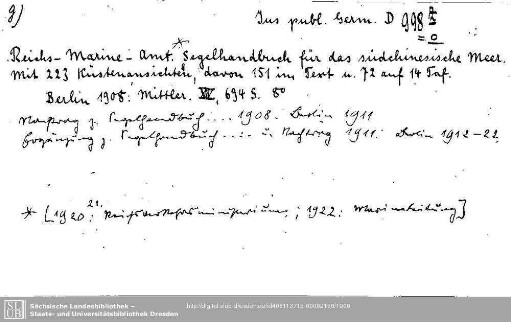 g)
Jus publ. Germ. D 998
Reichs-Marine-Amt.* Segelhandbuch für das südchinesische Meer.
Mit 223 Küstenansichten, davon 151 im Text u. 72 auf 14 Taf.
Berlin 1908: Mittler. XV, 694 S. 8°
Nachtrag z. Segelhandbuch ... 1908. Berlin 1911
Ergänzung z. Segelhandbuch ... u. Nachtrag 1911. Berlin 1912-22
* [1920, 21: Reichsverkehrsministerium; 1922: Marineleitung]
Sächsische Landesbibliothek –
Staats- und Universitätsbibliothek Dresden